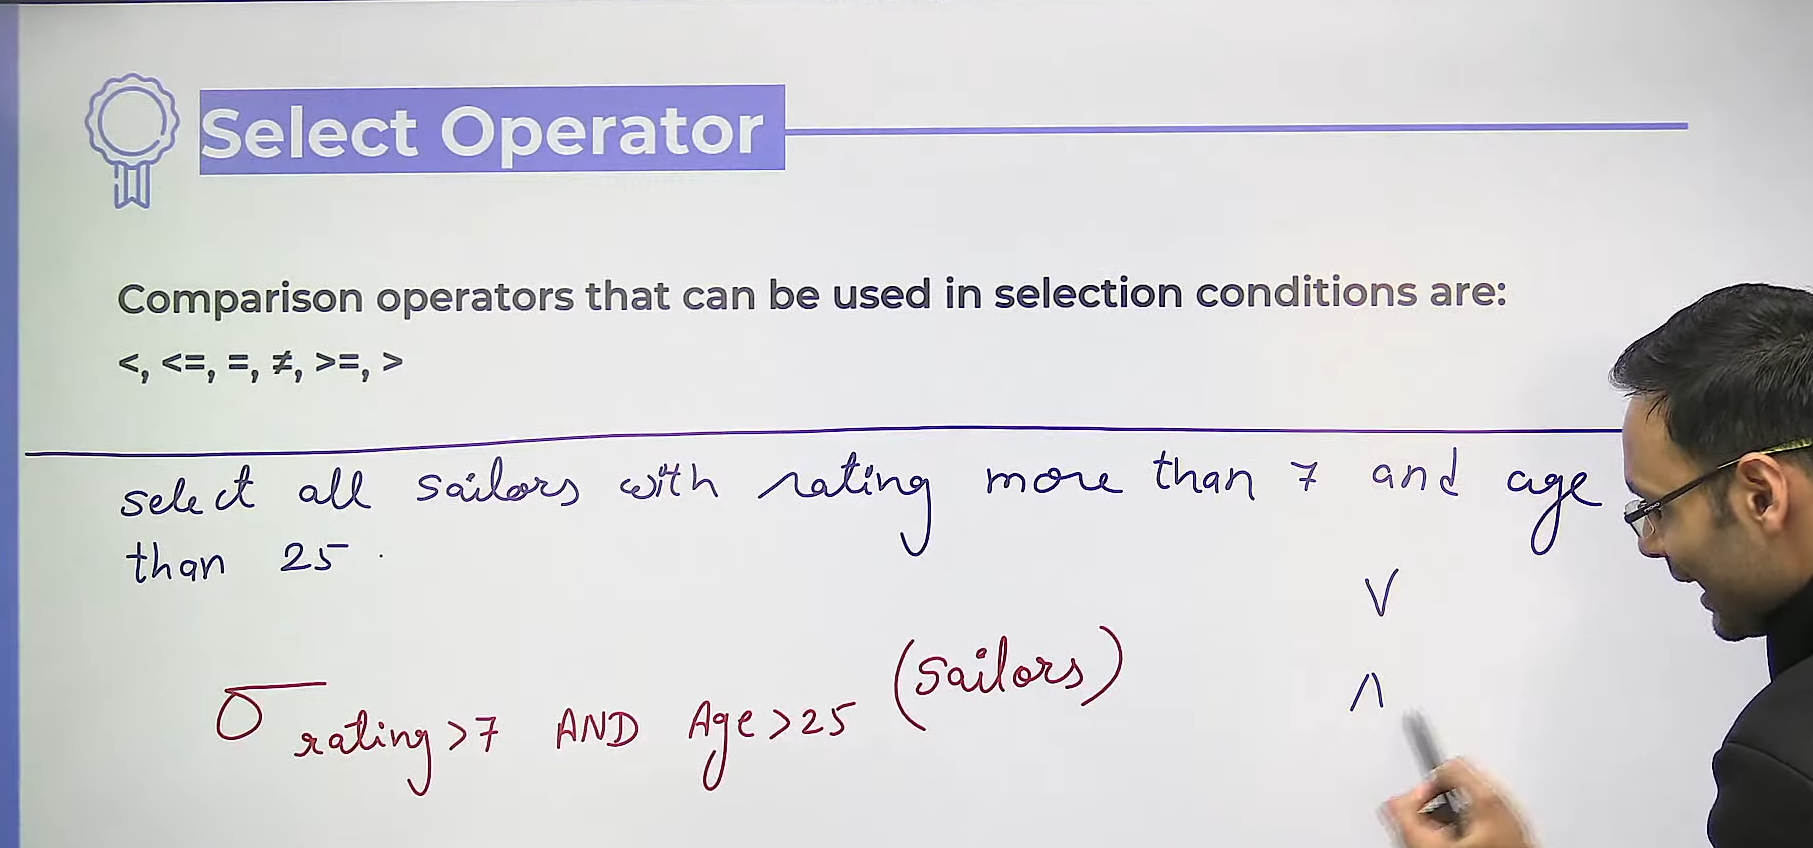 Select Operator
Comparison operators that can be used in selection conditions are:
<, <=, =, ≠, >=, >
select all sailors with rating more than 7 and age
than 25.
σ rating>7 AND Age>25 (Sailors)
∨
∧